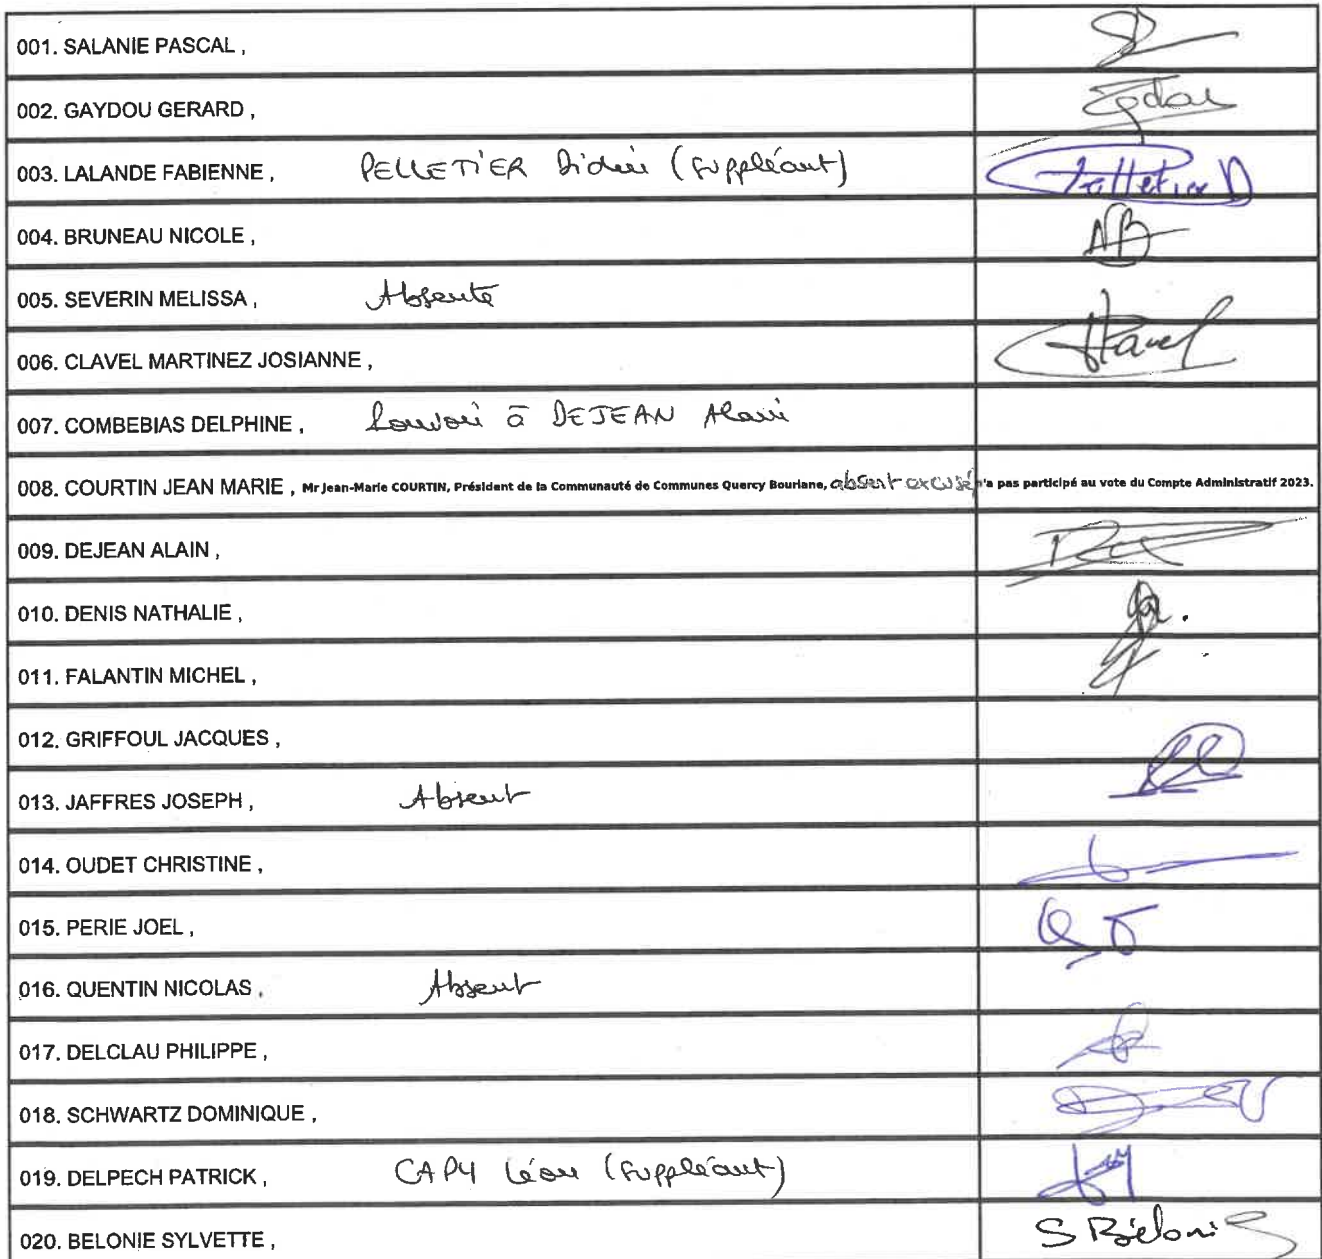 001. SALANIE PASCAL ,
002. GAYDOU GERARD ,
003. LALANDE FABIENNE , PELLETIER Didier (suppléant) Pelletier D
004. BRUNEAU NICOLE , NB
005. SEVERIN MELISSA , Absente
006. CLAVEL MARTINEZ JOSIANNE , Clavel
007. COMBEBIAS DELPHINE , Pouvoir à DEJEAN Alain
008. COURTIN JEAN MARIE , Mr Jean-Marie COURTIN, Président de la Communauté de Communes Quercy Bouriane, absent excusé n'a pas participé au vote du Compte Administratif 2023.
009. DEJEAN ALAIN ,
010. DENIS NATHALIE ,
011. FALANTIN MICHEL ,
012. GRIFFOUL JACQUES ,
013. JAFFRES JOSEPH , Absent
014. OUDET CHRISTINE ,
015. PERIE JOEL ,
016. QUENTIN NICOLAS , Absent
017. DELCLAU PHILIPPE ,
018. SCHWARTZ DOMINIQUE ,
019. DELPECH PATRICK , CAPY Léon (suppléant)
020. BELONIE SYLVETTE , S Bélonie